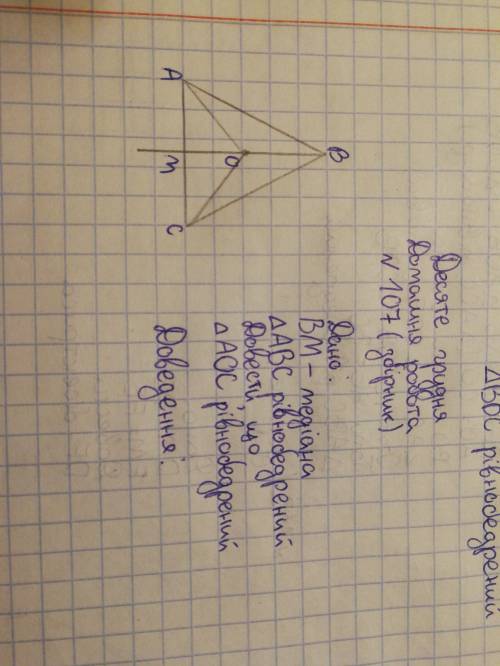 △BOC рівнобедрений
Десяте грудня
Домашня робота
№107 (збірник)
B
A
O
M
C
Дано:
BM – медіана
△ABC рівнобедрений
Довести, що
△AOC рівнобедрений
Доведення: